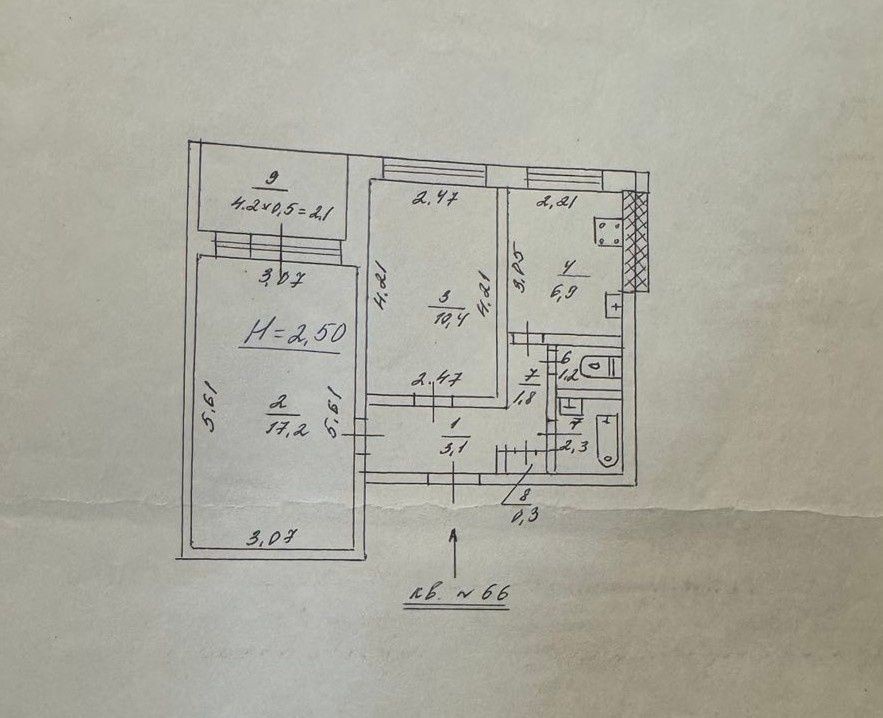 9
4.2x0,5=2,1
3,07
H=2,50
5,61
2
17,2
5,61
3,07
2,47
4.21
3
10,4
4.21
2.47
2,21
3,05
4
6,9
6
1,2
7
1,8
7
2,3
1
3,1
8
0,3
кв. № 66